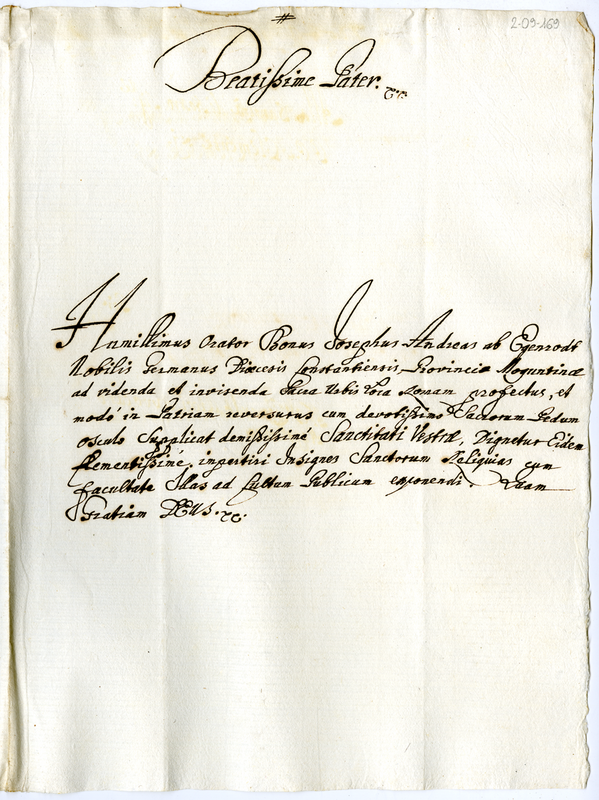 #
2-09-169
Beatissime Pater. &c.
Humillimus Orator Bonus Josephus Andreas ab Egenrodt
Nobilis Germanus Dioecesis Constantiensis Provinciæ Moguntinæ
ad videnda et invisenda Sacra Urbis Loca Romam profectus, et
modò in Patriam reversurus cum devotissimo Sacrorum Pedum
osculo supplicat demississimè Sanctitati Vestræ, Dignetur Eidem
Clementissimè impertiri Insignes Sanctorum Reliquias cum
facultate Illas ad Cultum Publicum exponendi. Quam
Gratiam DEUS. &c.